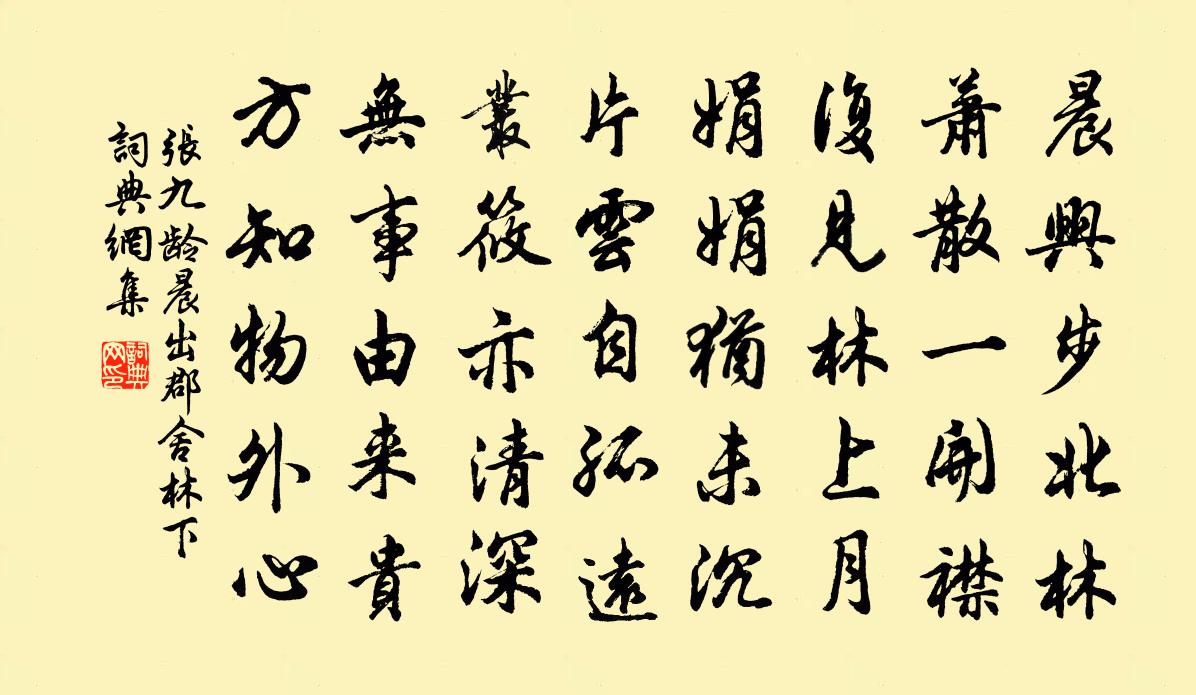 晨興步北林
蕭散一開襟
復見林上月
娟娟猶未沉
片雲自孤遠
叢筱亦清深
無事由来貴
方知物外心
張九龄晨出郡舍林下
詞典網集
詞典网印